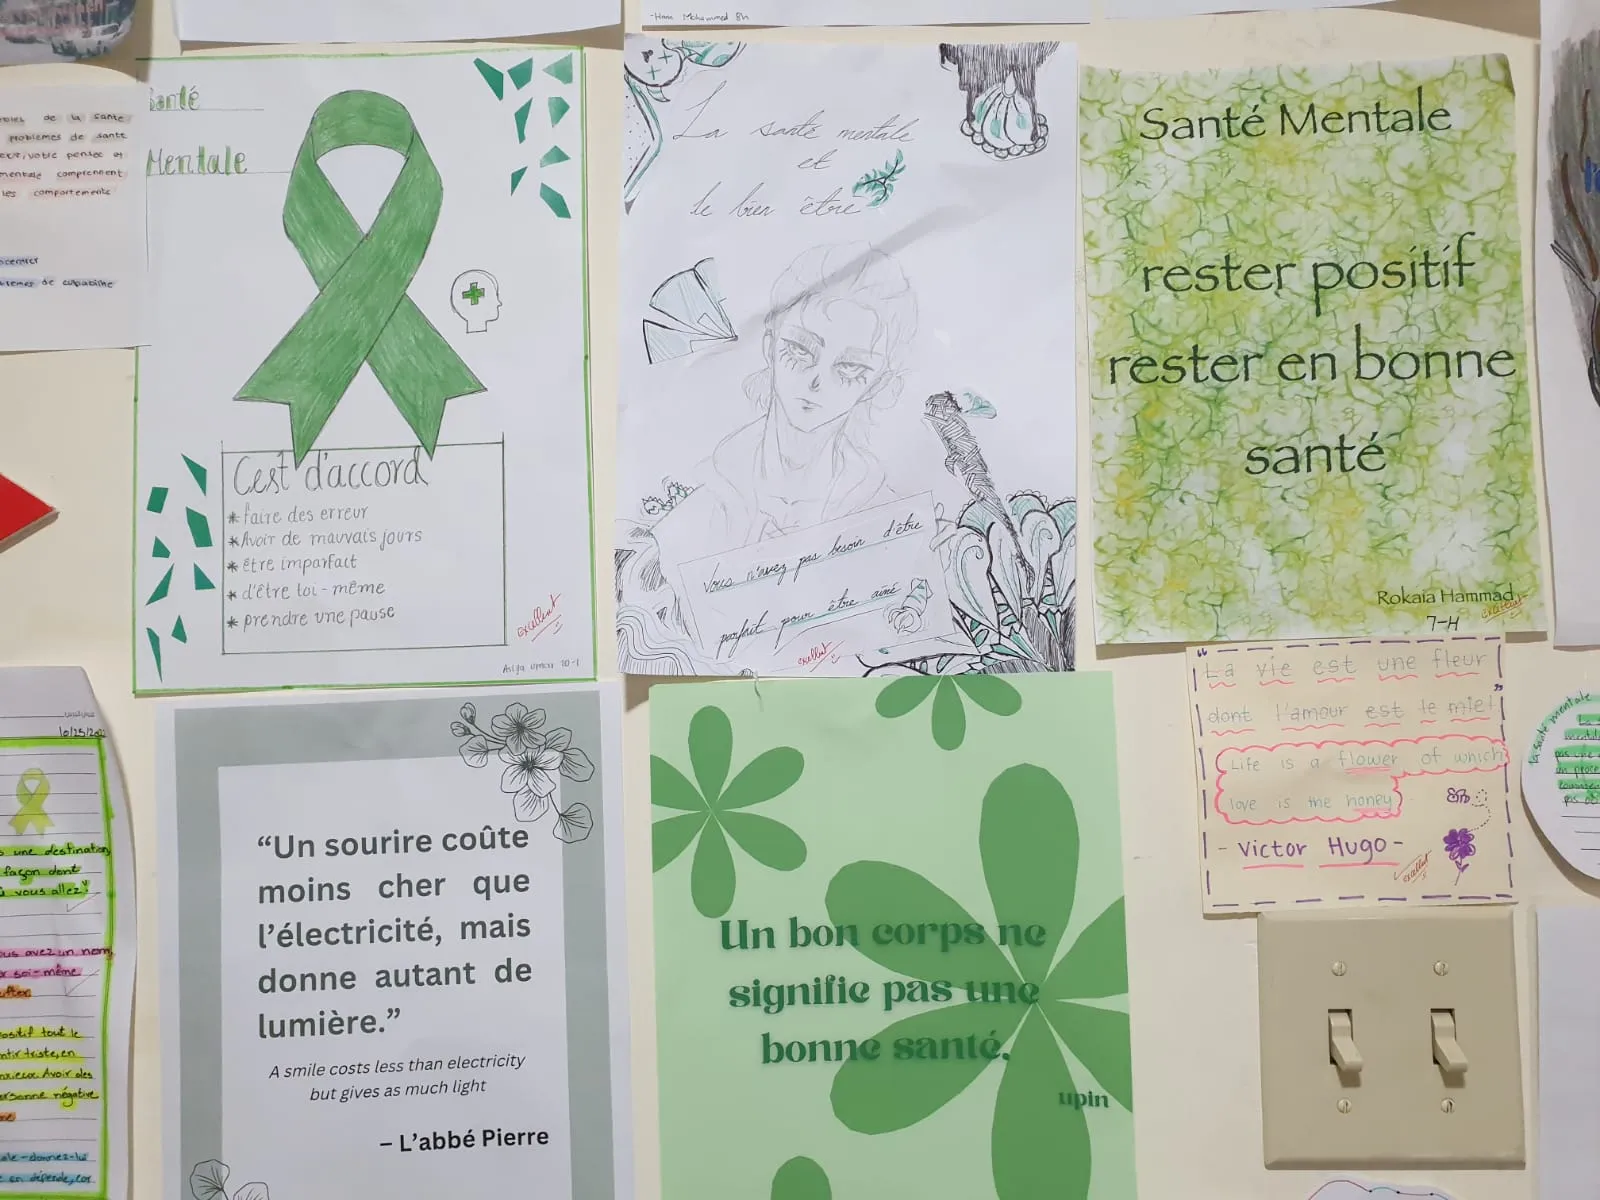 -Hana Mohammed 8H
de la santé
problèmes de santé
votre pensée et
mentale comprennent
les comportements
Santé
Mentale
C'est d'accord
* faire des erreur
* Avoir de mauvais jours
* être imparfait
* d'être toi-même
* prendre une pause
excellent
10-1
La santé mentale
et
le bien être
Vous n'avez pas besoin d'être
parfait pour être aimé
excellent
Santé Mentale
rester positif
rester en bonne
santé
Rokaia Hammad
7-H
10/25/202
s une destination,
façon dont
vous allez"
ous avez un nom,
soi-même
ositif tout le
ntir triste, en
nxieux. Avoir des
ersonne négative
ale-donnez-lui
"Un sourire coûte
moins cher que
l'électricité, mais
donne autant de
lumière."
A smile costs less than electricity
but gives as much light
– L'abbé Pierre
Un bon corps ne
signifie pas une
bonne santé.
upin
"La vie est une fleur
dont l'amour est le miel"
Life is a flower of which
love is the honey
- Victor Hugo -
excellent
la santé mentale